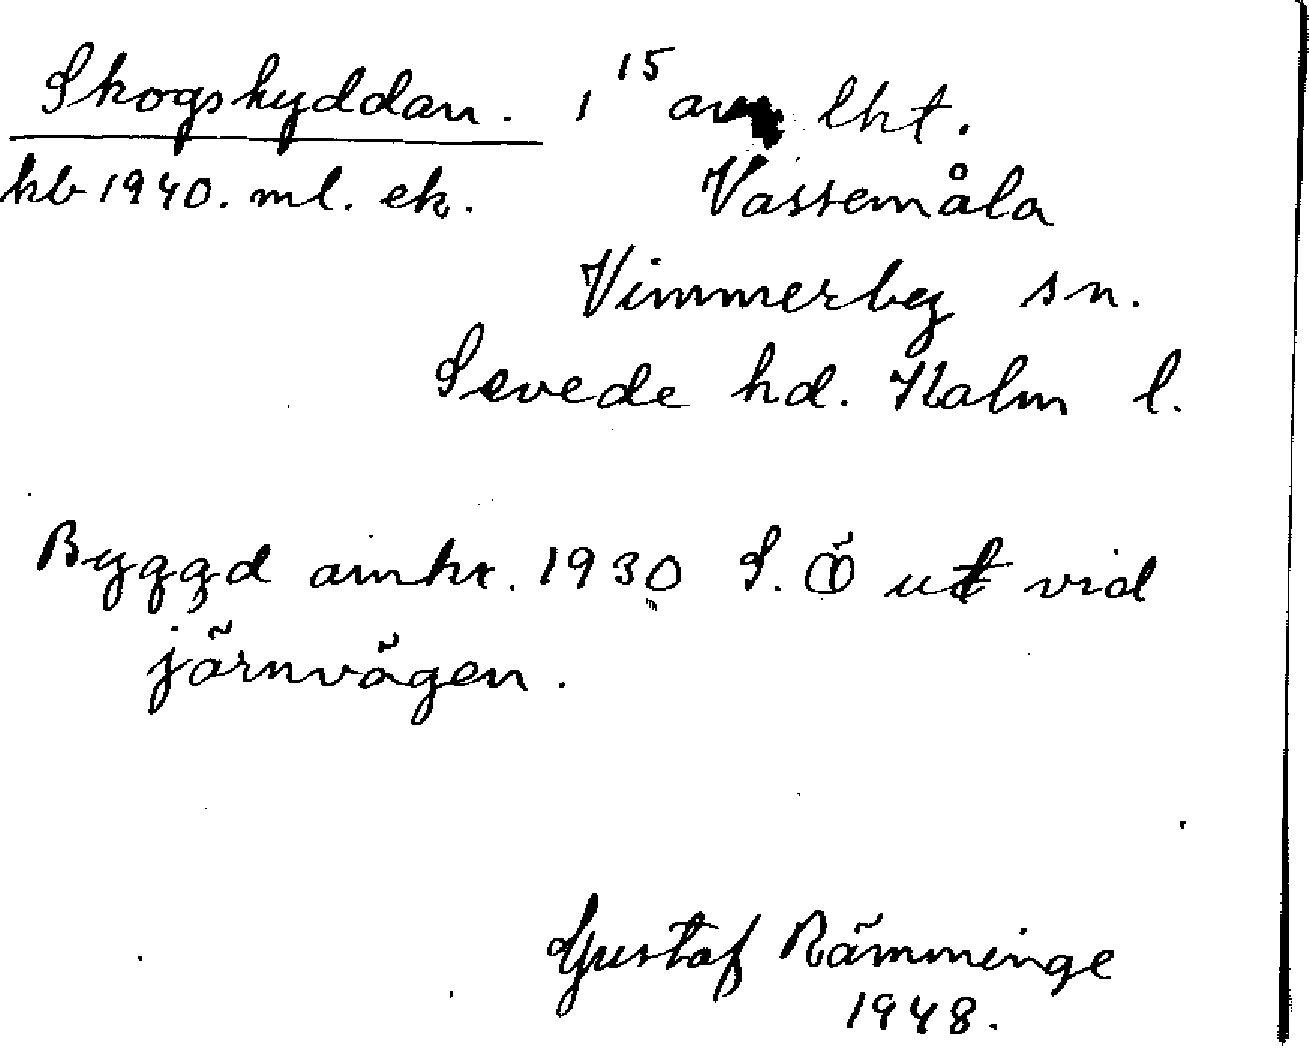 Skogshyddan. 1¹⁵ av lht.
kb 1940. ml. ek.
Vassemåla
Vimmerby sn.
Sevede hd. Kalm l.
Byggd omkr. 1930 S. Ö ut vid
järnvägen.
Gustaf Rämminge
1948.